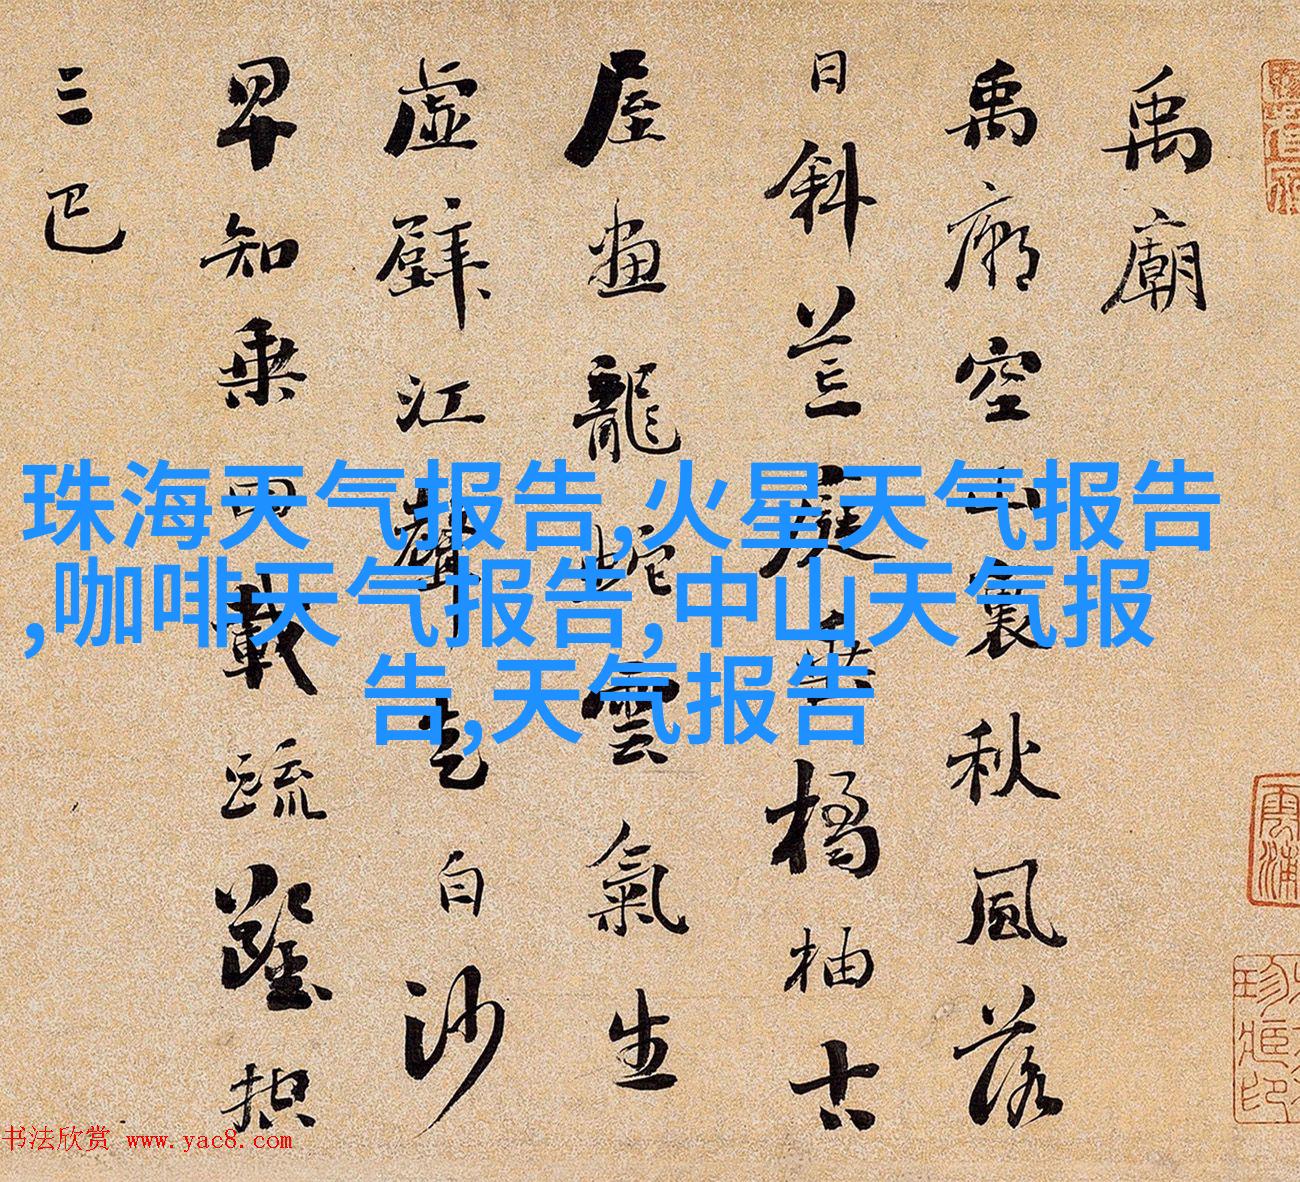 禹廟
禹廟空山裏秋風落
日斜荒庭垂橘柚古
屋畫龍蛇雲氣生
虛壁江聲走白沙
早知乘四載疏鑿控
三巴
珠海天气报告,火星天气报告
,咖啡天气报告,中山天气报
告,天气报告
书法欣赏 www.yac8.com